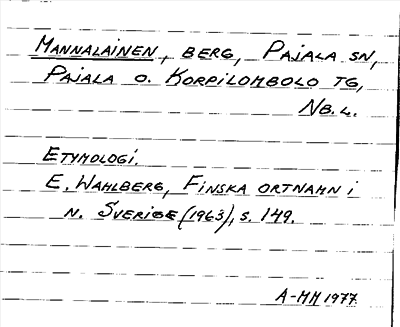 MANNALAINEN, BERG, PAJALA SN,
PAJALA O. KORPILOMBOLO TG,
NB.L.
ETYMOLOGI.
E. WAHLBERG, FINSKA ORTNAMN i
N. SVERIGE (1963), S. 149.
A-MH 1977